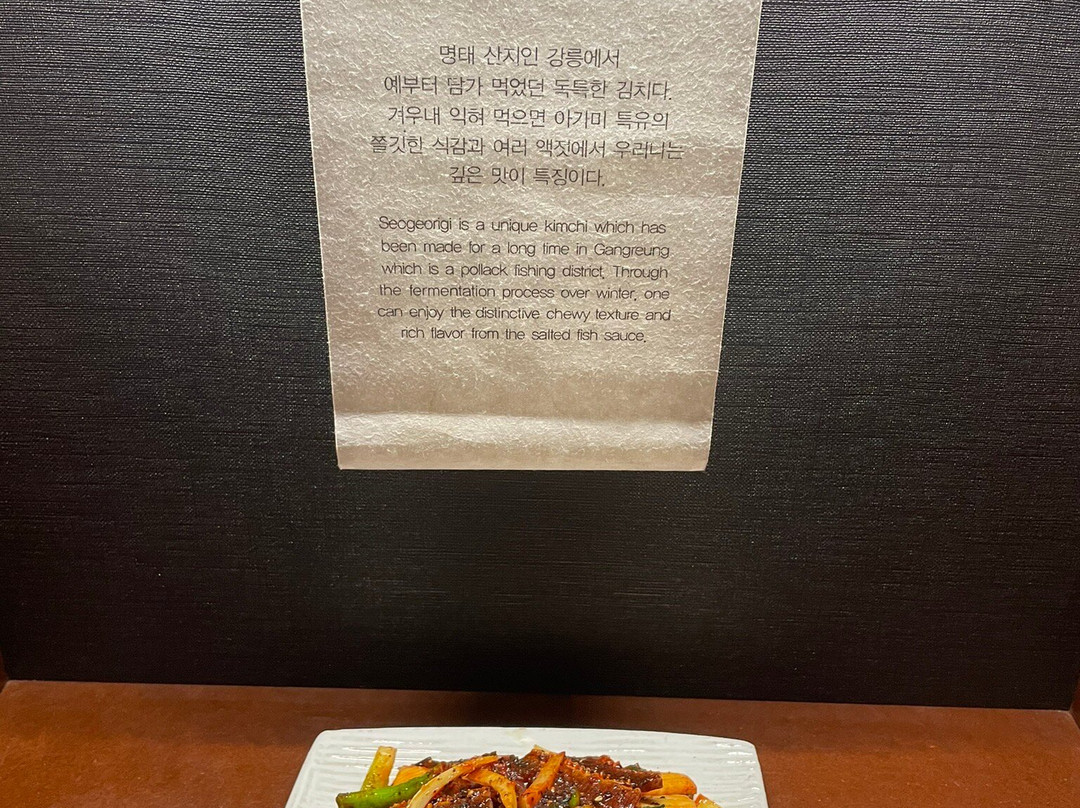 명태 산지인 강릉에서
예부터 담가 먹었던 독특한 김치다.
겨우내 익혀 먹으면 아가미 특유의
쫄깃한 식감과 여러 액젓에서 우러나는
깊은 맛이 특징이다.
Seogeorigi is a unique kimchi which has
been made for a long time in Gangreung
which is a pollack fishing district. Through
the fermentation process over winter, one
can enjoy the distinctive chewy texture and
rich flavor from the salted fish sauce.